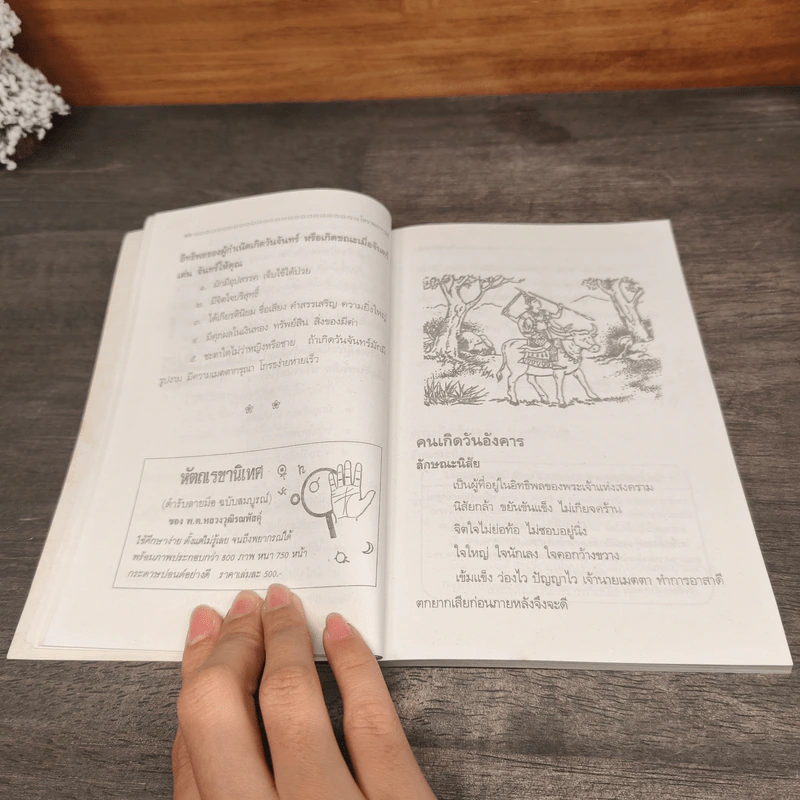 อิทธิพลของผู้กำเนิดเกิดวันจันทร์ หรือเกิดขณะเมื่อจันทร์
เด่น จันทร์ให้คุณ
๑. มักมีอุปสรรค เจ็บไข้ได้ป่วย
๒. มีจิตใจบริสุทธิ์
๓. ได้เกียรตินิยม ชื่อเสียง คำสรรเสริญ ความยิ่งใหญ่
๔. มีคุณผลในเงินทอง ทรัพย์สิน สิ่งของมีค่า
๕. ชะตาใดไม่ว่าหญิงหรือชาย ถ้าเกิดวันจันทร์มักมี
รูปงาม มีความเมตตากรุณา โกรธง่ายหายเร็ว
หัตถเรขานิเทศ
(ตำรับลายมือ ฉบับสมบูรณ์)
ของ พ.ต.หลวงวุฒิรณพัสดุ์
ใช้ศึกษาง่าย ตั้งแต่ไม่รู้เลย จนถึงพยากรณ์ได้
พร้อมภาพประกอบกว่า 800 ภาพ หนา 750 หน้า
กระดาษปอนด์อย่างดี ราคาเล่มละ 500.-
คนเกิดวันอังคาร
ลักษณะนิสัย
เป็นผู้ที่อยู่ในอิทธิพลของพระเจ้าแห่งสงคราม
นิสัยกล้า ขยันขันแข็ง ไม่เกียจคร้าน
จิตใจไม่ย่อท้อ ไม่ชอบอยู่นิ่ง
ใจใหญ่ ใจนักเลง ใจคอกว้างขวาง
เข้มแข็ง ว่องไว ปัญญาไว เจ้านายเมตตา ทำการอาสาดี
ตกยากเสียก่อนภายหลังจึงจะดี